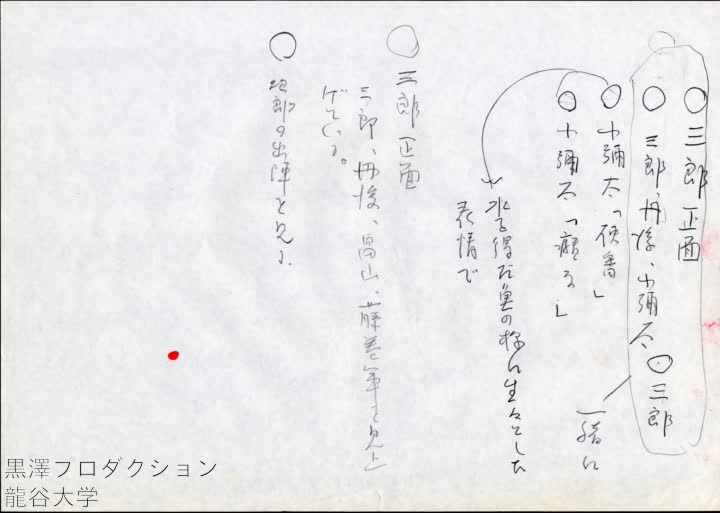 ○ 三郎 正面
○ 三郎、丹後、小彌太 ○ 三郎
一緒に
○ 小彌太「使番」
○ 小彌太「痴る」
水を得た魚の様に生々とした
表情で
○ 三郎 正面
三郎、丹後、畠山、藤巻軍を見上
げている。
○ 次郎の出陣と見る、
黒澤プロダクション
龍谷大学